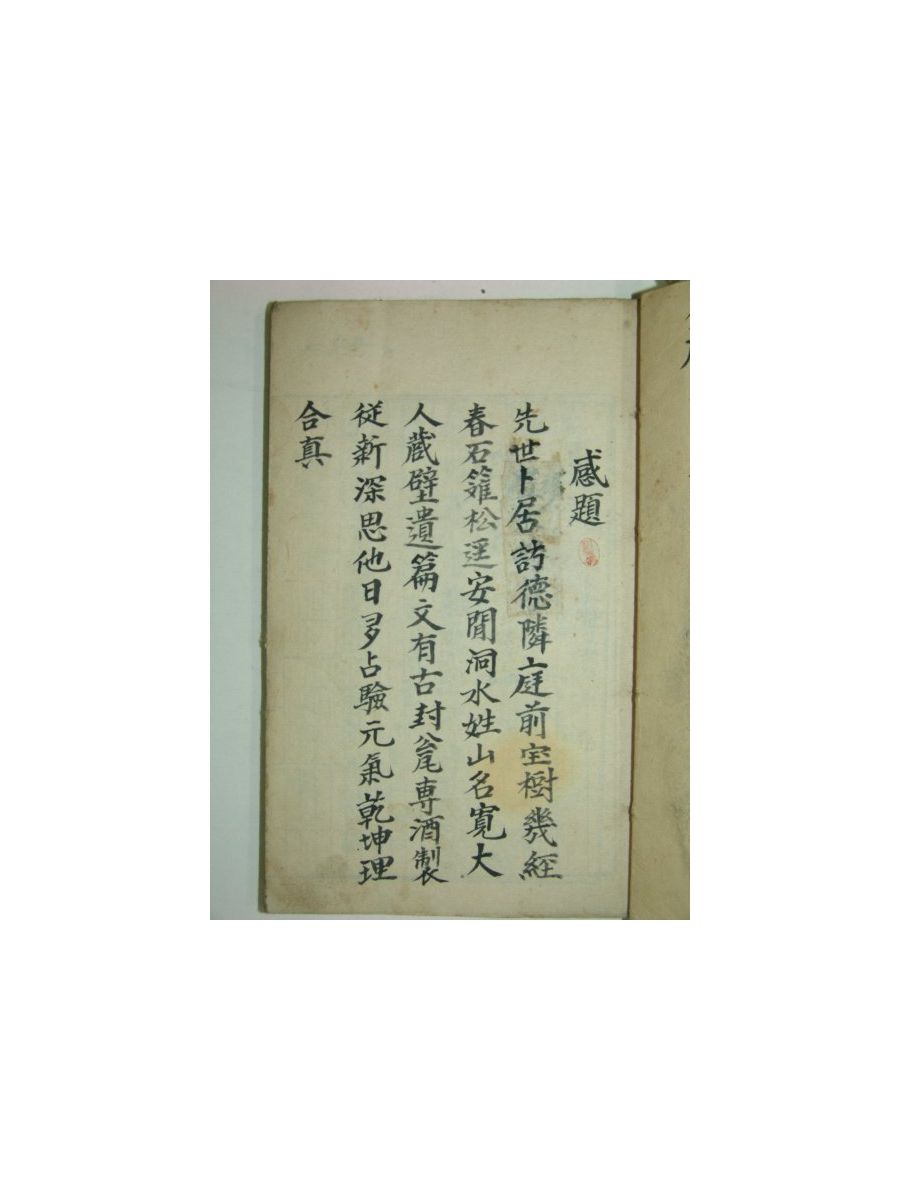 感題
先世卜居訪德隣庭前宝樹幾經
春石籬松逕安閒洞水姓山名寬大
人藏壁遺篇文有古封瓮尾專酒製
從新深思他日多占驗元氣乾坤理
合真